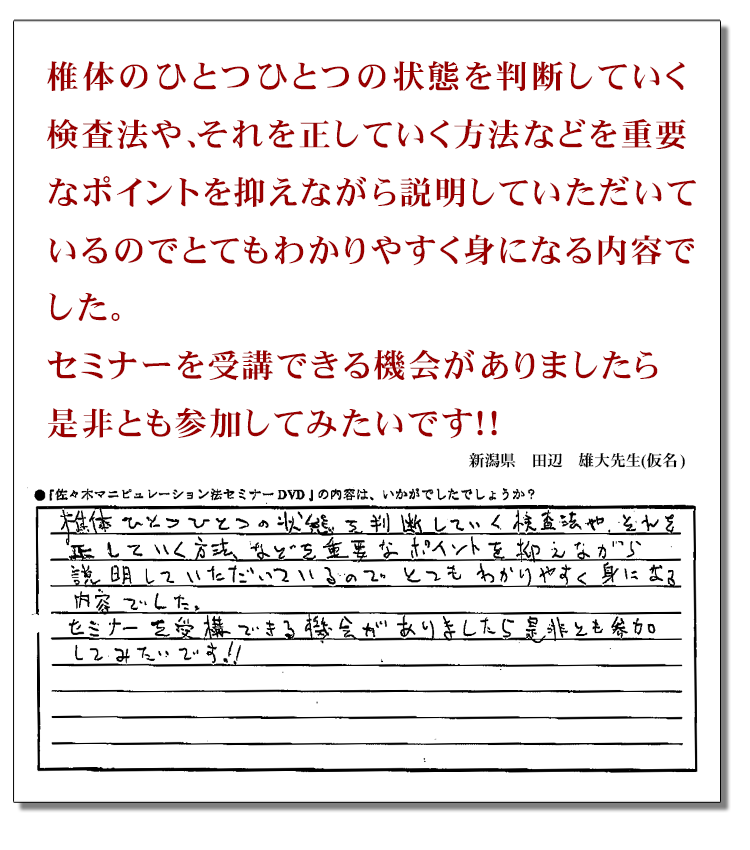 椎体のひとつひとつの状態を判断していく
検査法や、それを正していく方法などを重要
なポイントを抑えながら説明していただいて
いるのでとてもわかりやすく身になる内容で
した。
セミナーを受講できる機会がありましたら
是非とも参加してみたいです!!
新潟県　田辺　雄大先生(仮名)
●『佐々木マニピュレーション法セミナーDVD』の内容は、いかがでしたでしょうか？
椎体ひとつひとつの状態を判断していく検査法や、それを
正していく方法、などを重要なポイントを抑えながら
説明していただいているので、とてもわかりやすく身になる
内容でした。
セミナーを受構できる機会がありましたら是非とも参加
してみたいです!!